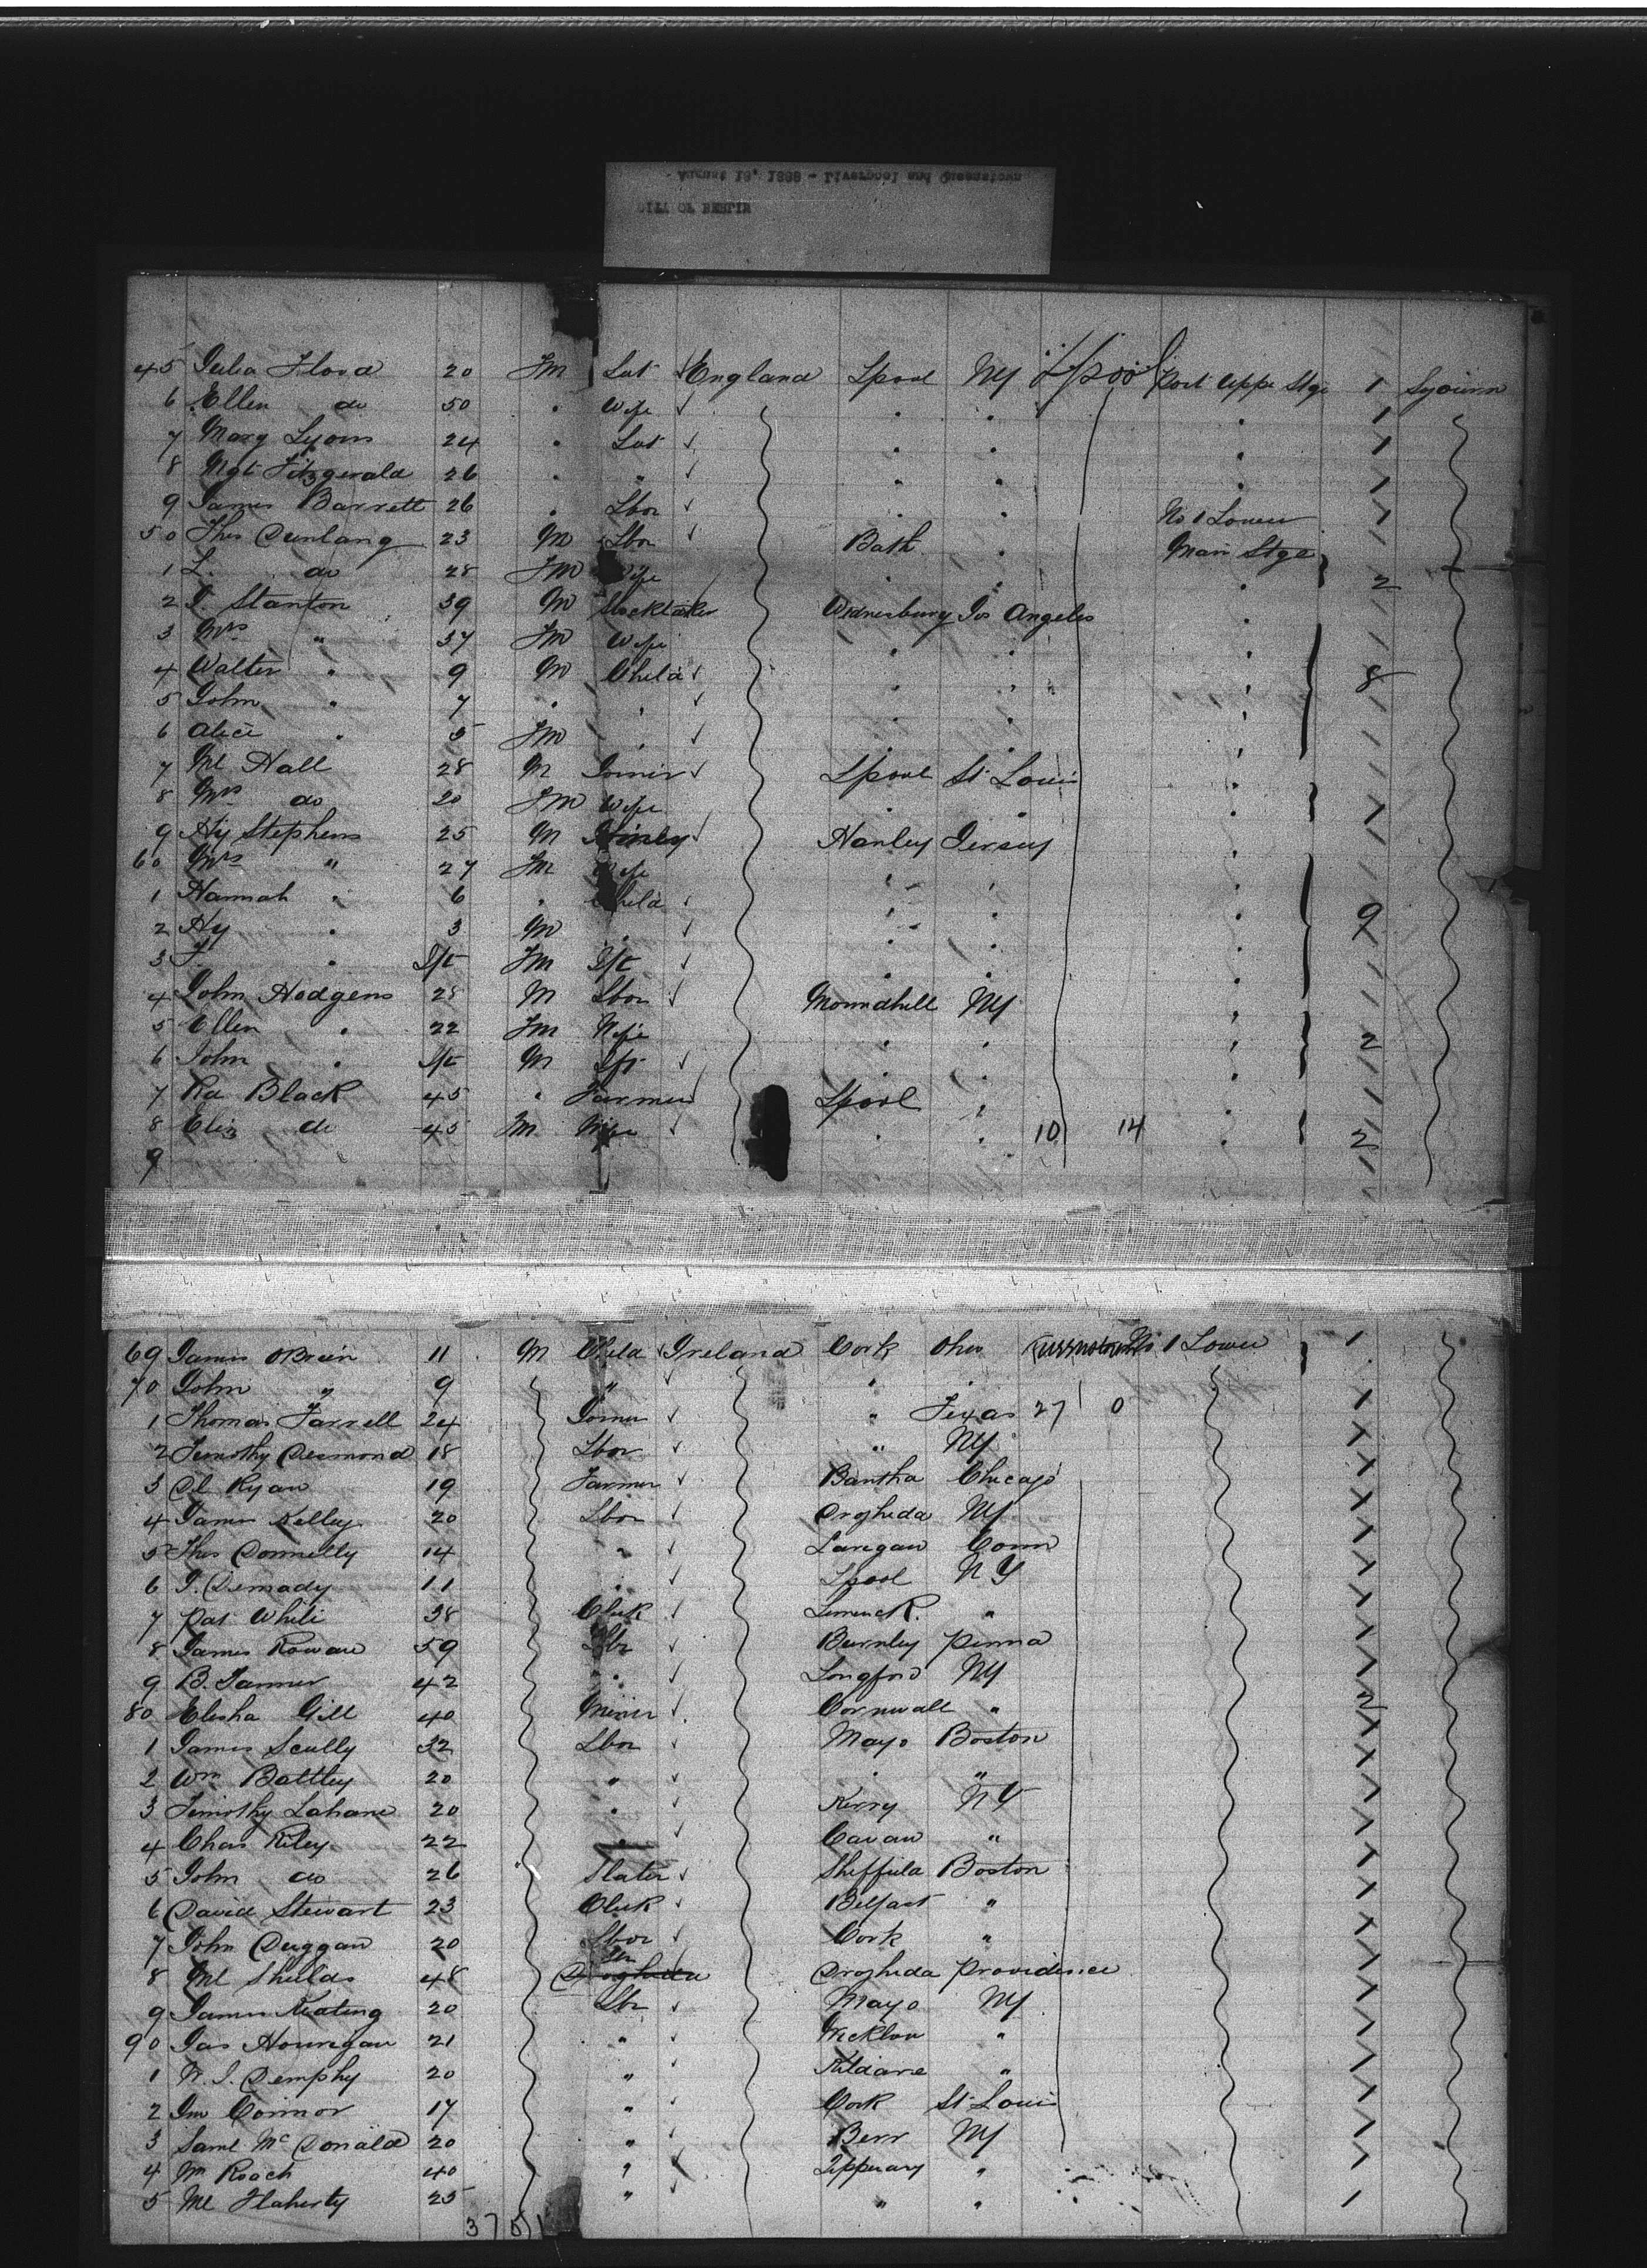 August 18, 1888 - Liverpool and Queenstown
CITY OF BERLIN
45 Julia Flood 20 Fm Lat England Lpool NY L/pool Port Uppr Stge 1
6 Ellen do 50 " Wife " " " 1
7 Mary Lyons 24 " Lat " " " 1
8 Mgt Fitzgerald 26 " " " " " 1
9 James Barrett 26 " Lbor " " No 1 Lower 1
50 Thos Dunlang 23 M Lbor Bath " Main Stge
1 L. do 28 Fm Wife " " " 2
2 J. Stanton 39 M Stocktaker Wednesbury Los Angeles "
3 Mrs " 37 Fm Wife " " "
4 Walter " 9 M Child " " " 8
5 John " 7 " " " " "
6 Alice " 5 Fm " " " "
7 Ml Hall 28 M Joiner Lpool St Louis "
8 Mrs do 20 Fm Wife " " "
9 Hy Stephens 25 M Hanley Jersey "
60 Mrs " 27 Fm Wife " " "
1 Hannah " 6 " Child " " " 9
2 Hy " 3 M " " " "
3 F. " Inft Fm Inft " " "
4 John Hodgens 28 M Lbor Moundhill NY "
5 Ellen " 22 Fm Wife " " " 2
6 John " Inft M Inft " " "
7 Rd Black 45 " Farmer Lpool " "
8 Eliz do 45 Fm Wife " " 10 14 " 2
9
69 James OBrien 11 M Child Ireland Cork Ohio Queenstown No 1 Lower 1
70 John " 9 " " "
1 Thomas Farrell 24 Joiner " Texas 27 0 1
2 Timothy Desmond 18 Lbor " NY 1
3 Dl Ryan 19 Farmer Bansha Chicago 1
4 James Kelley 20 Lbor Drogheda NY 1
5 Thos Donnelly 14 " Conn 1
6 J. Demady 11 " Lpool NY 1
7 Pat White 38 Clerk Limerick " 1
8 James Rowan 59 Lbr Burnley Penna 1
9 B. Farmer 42 " Longford NY 1
80 Elisha Gill 40 Miner Cornwall " 2
1 James Scully 32 Lbor Mayo Boston 1
2 Wm Battley 20 " " " 1
3 Timothy Lahane 20 " Kerry NY 1
4 Chas Riley 22 " Cavan " 1
5 John do 26 Slater Sheffield Boston 1
6 David Stewart 23 Clerk Belfast " 1
7 John Duggan 20 Lbor Cork " 1
8 Ml Shields 48 Drogheda Lbr Drogheda Providence 1
9 James Keating 20 Lbr Mayo NY 1
90 Jas Hourigan 21 " Wicklow " 1
1 W. J. Demphy 20 " Kildare " 1
2 Jno Connor 17 " Cork St Louis 1
3 Saml McDonald 20 " NY 1
4 Wm Roach 40 " Tipperary " 1
5 Ml Flaherty 25 " " " 1